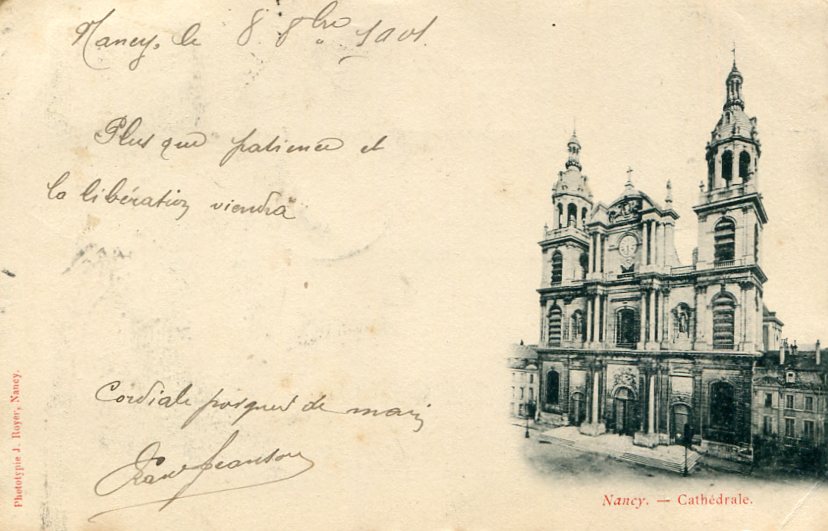 Nancy, le 8 8bre 1901
Plus que patience et
la libération viendra
Cordiale poignée de main
Jeanson
Nancy. — Cathédrale.
Phototypie J. Royer, Nancy.